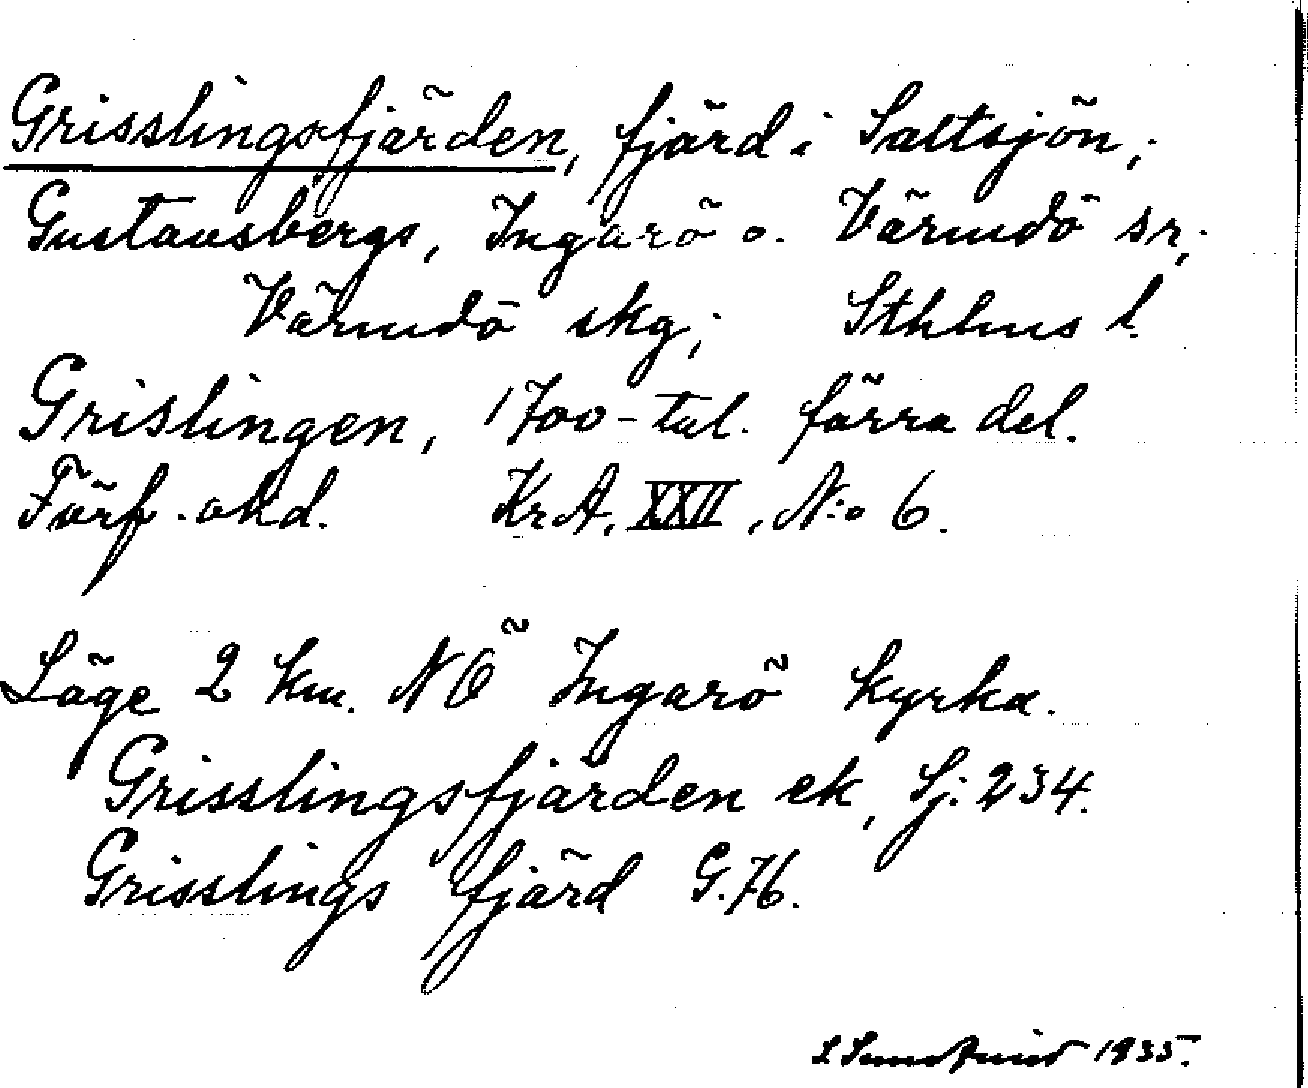 Grisslingsfjärden, fjärd i Saltsjön;
Gustavsbergs, Ingarö o. Värmdö sr;
Värmdö skg; Sthlms l.
Grislingen, 1700-tal. förra del.
Förf. okd. KrA, XXII, N:o 6.
Läge 2 km. NÖ Ingarö kyrka.
Grisslingsfjärden ek, Sj: 234.
Grisslings fjärd G.76.
1935.